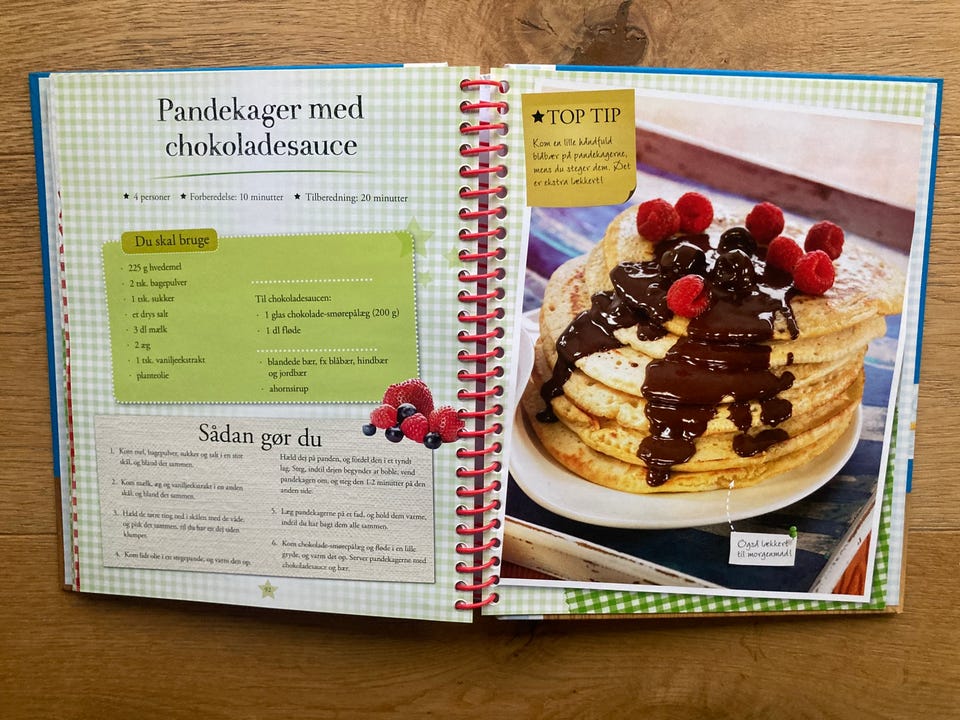 Pandekager med
chokoladesauce
★ 4 personer ★ Forberedelse: 10 minutter ★ Tilberedning: 20 minutter
Du skal bruge
· 225 g hvedemel
· 2 tsk. bagepulver
· 1 tsk. sukker
· et drys salt
· 3 dl mælk
· 2 æg
· 1 tsk. vaniljeekstrakt
· planteolie
Til chokoladesaucen:
· 1 glas chokolade-smørepålæg (200 g)
· 1 dl fløde
· blandede bær, fx blåbær, hindbær
og jordbær
· ahornsirup
Sådan gør du
1. Kom mel, bagepulver, sukker og salt i en stor
skål, og bland det sammen.
2. Kom mælk, æg og vaniljeekstrakt i en anden
skål, og bland det sammen.
3. Hæld de tørre ting ned i skålen med de våde,
og pisk det sammen, til du har en dej uden
klumper.
4. Kom lidt olie i en stegepande, og varm den op.
Hæld dej på panden, og fordel den i et tyndt
lag. Steg, indtil dejen begynder at boble, vend
pandekagen om, og steg den 1-2 minutter på den
anden side.
5. Læg pandekagerne på et fad, og hold dem varme,
indtil du har bagt dem alle sammen.
6. Kom chokolade-smørepålæg og fløde i en lille
gryde, og varm det op. Server pandekagerne med
chokoladesauce og bær.
92
★TOP TIP
Kom en lille håndfuld
blåbær på pandekagerne,
mens du steger dem. Det
er ekstra lækkert!
Også lækkert
til morgenmad!